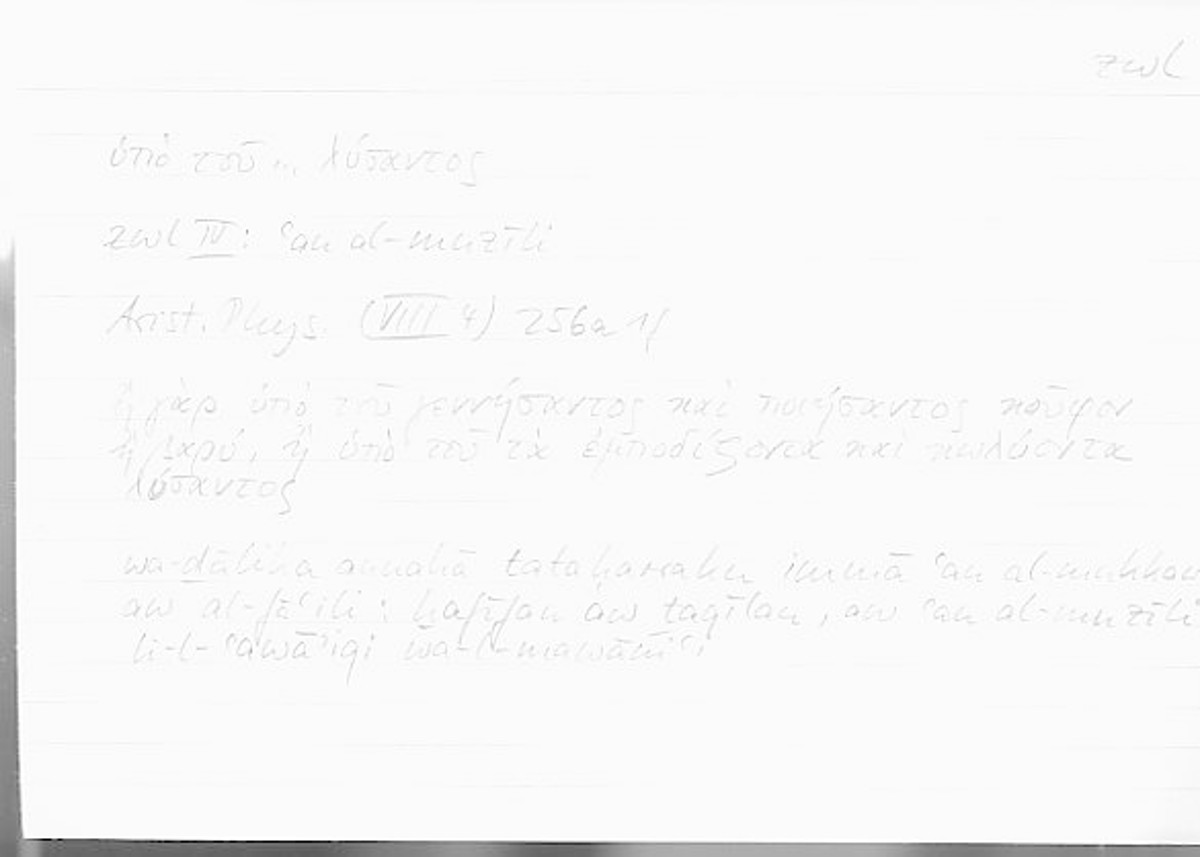 zwl
ὑπὸ τοῦ ... λύσαντος
zwl IV: ʿan al-muzīli
Arist. Phys. (VIII 4) 256a 1f
ἢ γὰρ ὑπὸ τοῦ γεννήσαντος καὶ ποιήσαντος κοῦφον
ἢ βαρύ, ἢ ὑπὸ τοῦ τὰ ἐμποδίζοντα καὶ κωλύοντα
λύσαντος
wa-ḏālika annahā tataḥarraku immā ʿan al-mukkaw
aw al-fāʿili: ḫafīfan aw ṯaqīlan, aw ʿan al-muzīli
li-l-ʿawāʾiqi wa-l-mawāniʿi